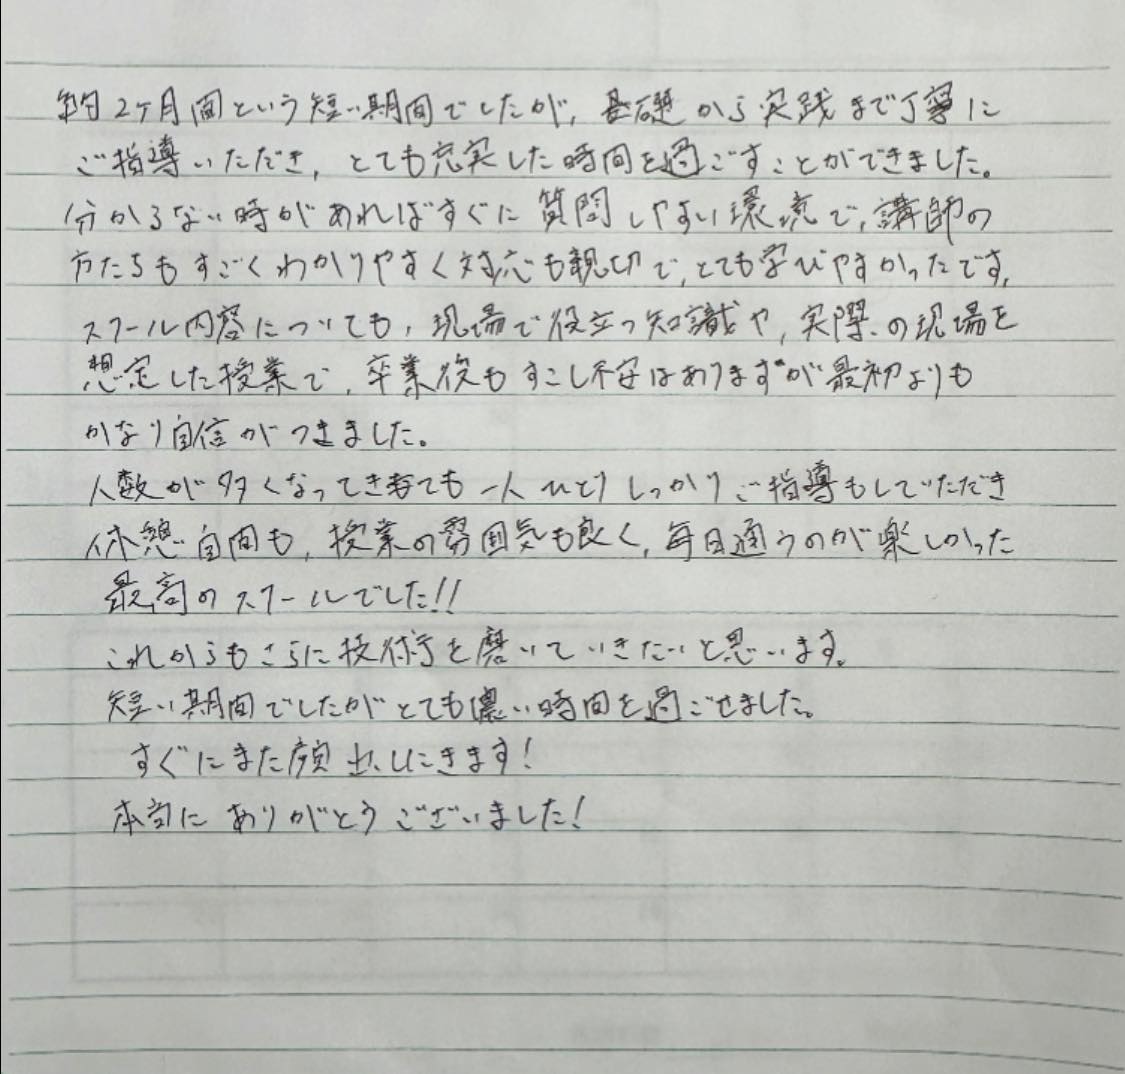 約2ヶ月間という短い期間でしたが、基礎から実践まで丁寧に
ご指導いただき、とても充実した時間を過ごすことができました。
分からない時があればすぐに質問しやすい環境で、講師の
方たちもすごくわかりやすく対応も親切で、とても学びやすかったです。
スクール内容についても、現場で役立つ知識や、実際の現場を
想定した授業で、卒業後もすこし不安はありますが最初よりも
かなり自信がつきました。
人数が多くなってきても一人ひとりしっかりご指導もしていただき
休憩自間も、授業の雰囲気も良く、毎日通うのが楽しかった
最高のスクールでした!!
これからもさらに技術を磨いていきたいと思います。
短い期間でしたがとても濃い時間を過ごせました。
すぐにまた顔出しにきます!
本当にありがとうございました!